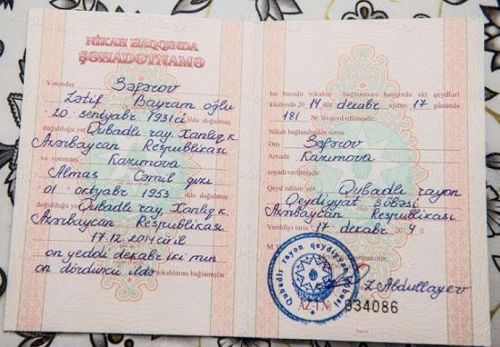 NİKAH HAQQINDA
ŞƏHADƏTNAMƏ
Vətəndaş Səfərov
Lətif Bayram oğlu
20 sentyabr 1931ci ildə doğulmuş
doğulduğu yer Qubadlı ray. Xanlıq k.
Azərbaycan Respublikası
və vətəndaş Kazımova
Almas Cəmil qızı
01 oktyabr 1953 ildə doğulmuş
doğulduğu yer Qubadlı ray. Xanlıq k.
Azərbaycan Respublikası
17.12.2014cü il
on yeddi dekabr iki min
on dördüncü ildə nikahlarını bağlamışlar
bu barədə nikahın bağlanması haqqında akt qeydləri
kitabında 2014 dekabr ayının 17 günündə
181 №-li qeyd edilmişdir.
Nikah bağlandıqdan sonra
Ərə Səfərov
Arvada Kazımova
soyadı verilmişdir.
Qeyd edilən yer Qubadlı rayon
Qeydiyyat şöbəsi
Azərbaycan Respublikası
Verildiyi tarix 17 dekabr 2014
M.Y.
Z.Abdullayev
Qubadlı rayon qeydiyyat şöbəsi
AZ-I № 934086